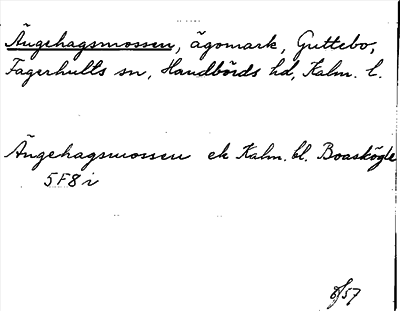 Ängehagsmossen, ägomark, Guttebo,
Fagerhults sn, Handbörds hd, Kalm. l.
Ängehagsmossen ek Kalm. bl. Boaskögle
5F8i
/57